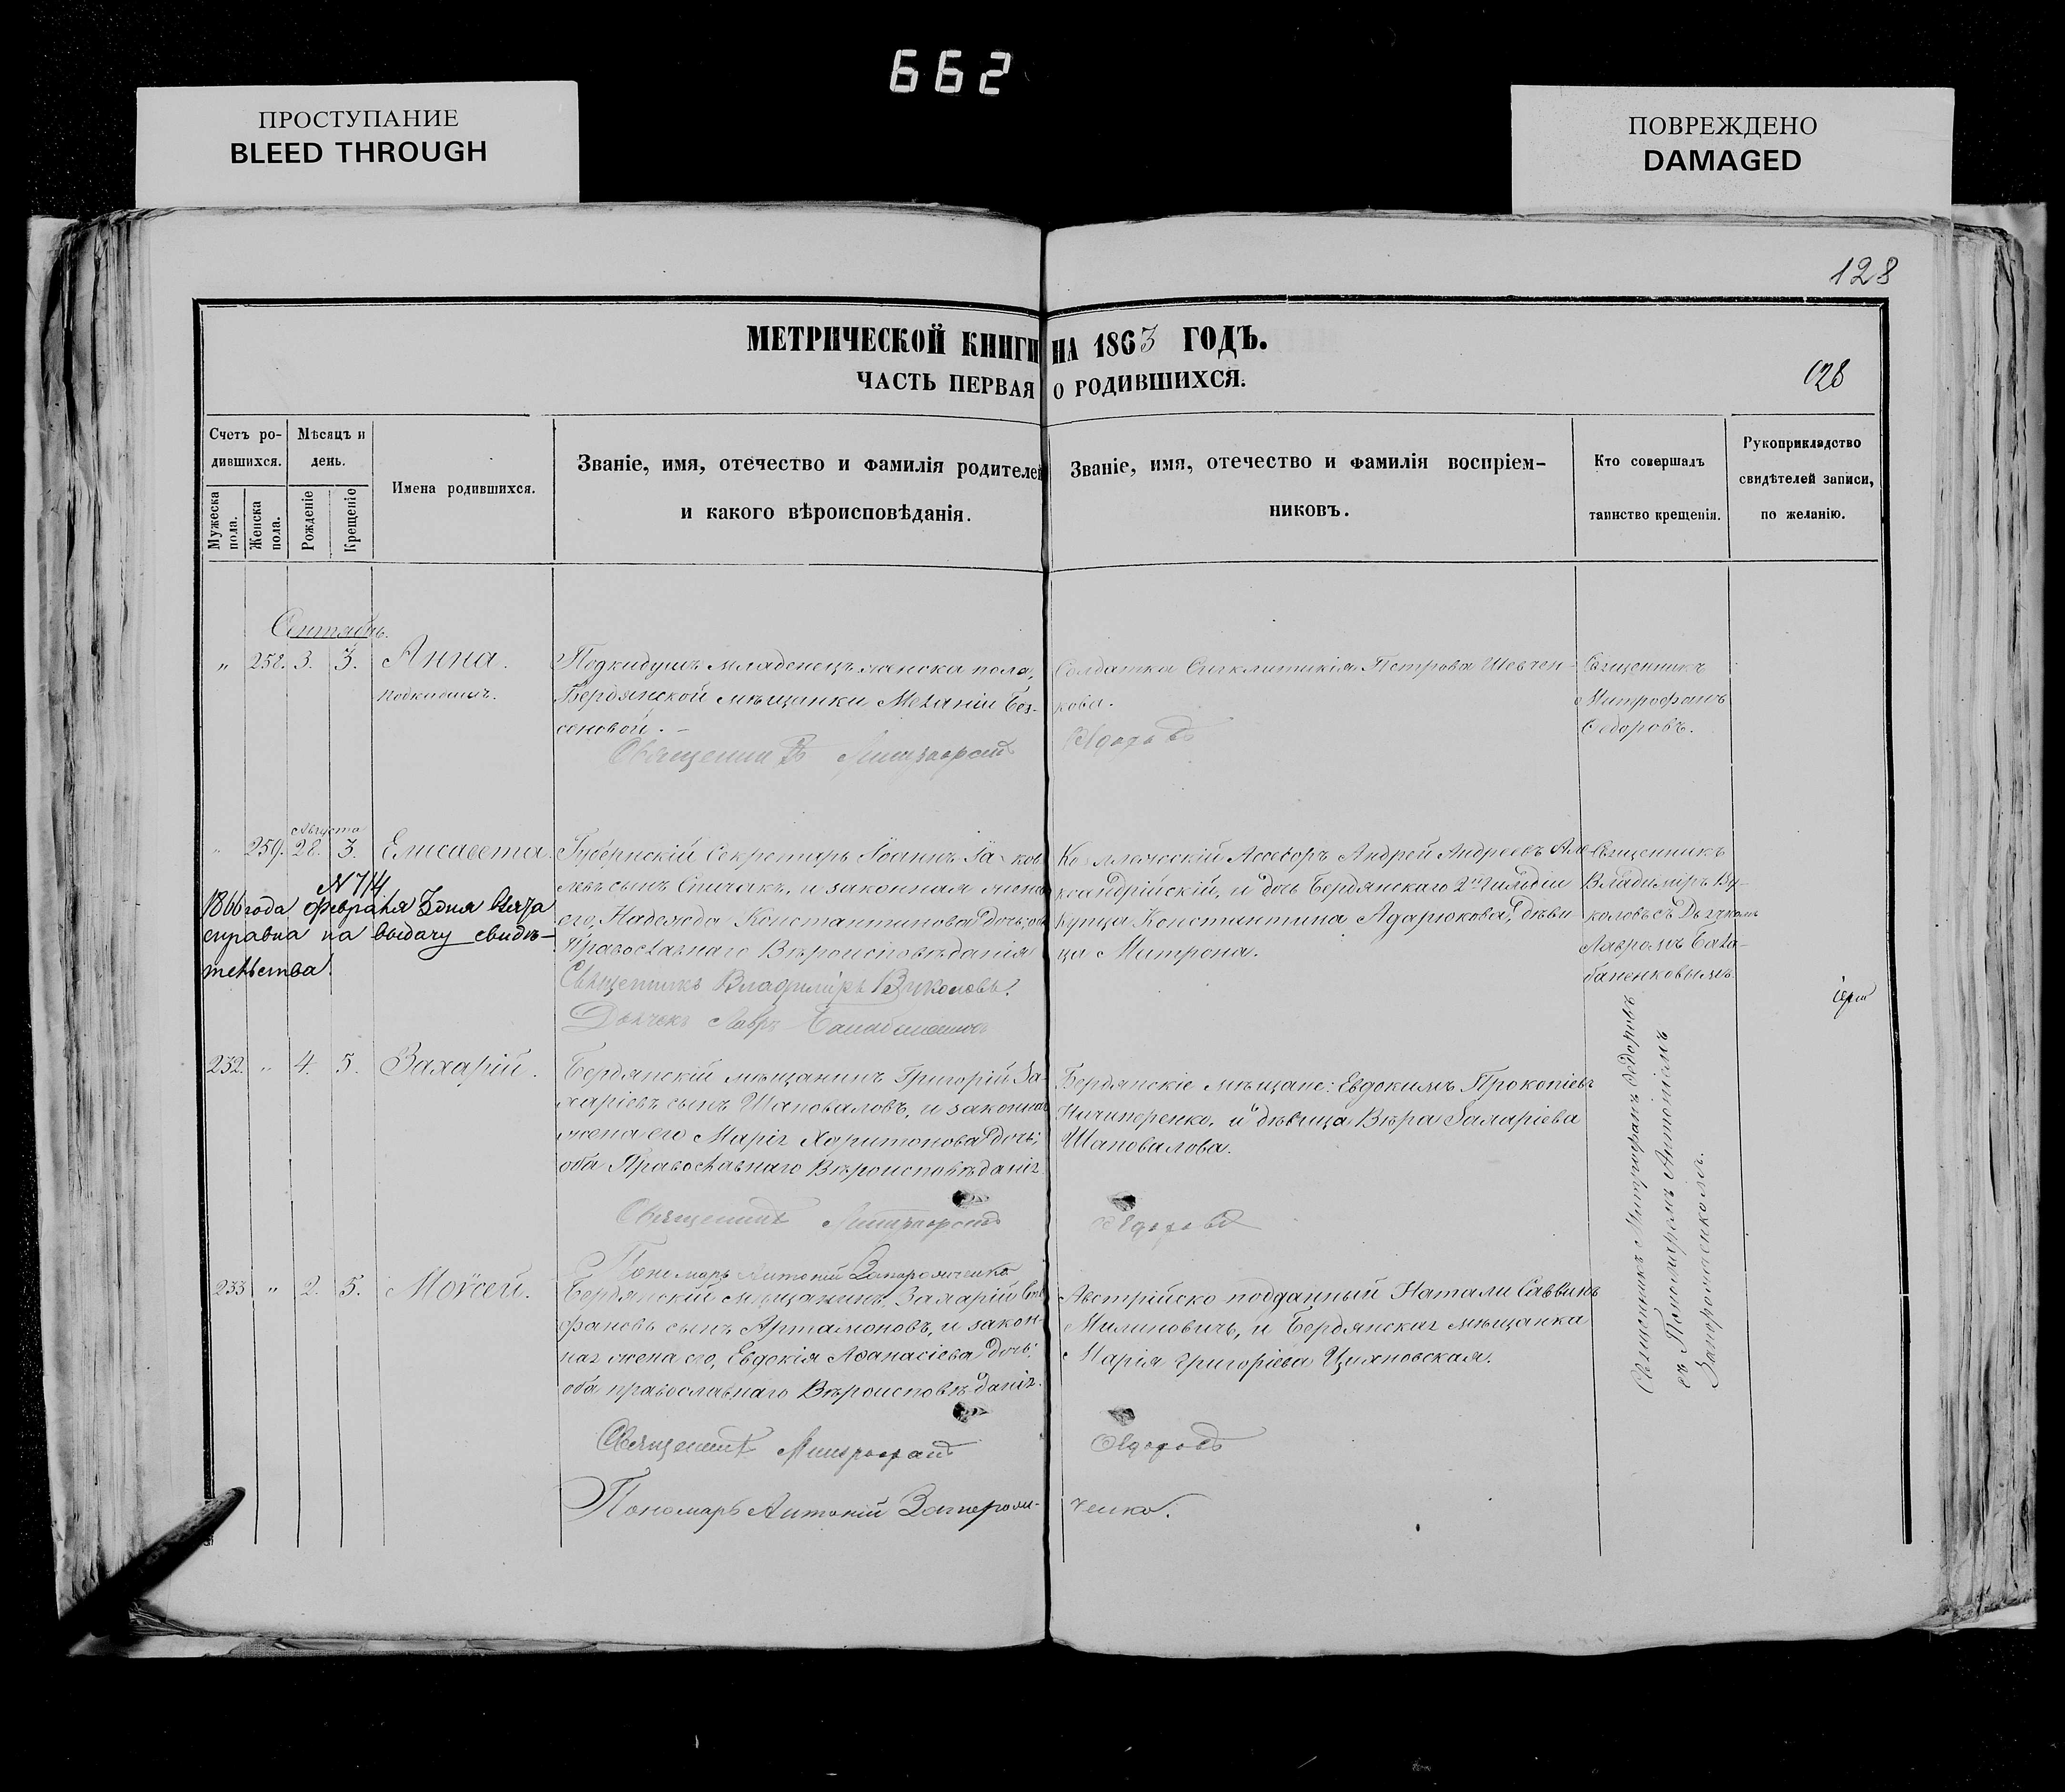 662
ПРОСТУПАНИЕ
BLEED THROUGH
ПОВРЕЖДЕНО
DAMAGED
128
МЕТРИЧЕСКОЙ КНИГИ НА 1863 ГОДЪ.
ЧАСТЬ ПЕРВАЯ О РОДИВШИХСЯ.
128
Счетъ ро-
дившихся.
Мужеска пола.
Женска пола.
Мѣсяцъ и
день.
Рожденіе
Крещеніе
Имена родившихся.
Званіе, имя, отечество и фамилія родителей
и какого вѣроисповѣданія.
Званіе, имя, отечество и фамилія воспріем-
никовъ.
Кто совершалъ
таинство крещенія.
Рукоприкладство
свидѣтелей записи,
по желанію.
Сентябрь.
" 258. 3. 3. Анна.
подкидышъ.
Подкидушъ младенецъ женска пола,
Бердянской мѣщанки Меланіи Без-
сеновой. –
Священникъ Митрофанъ Ѳедоровъ
Солдатка Синклитикія Петрова Шевчен-
кова.
Священникъ
Митрофанъ
Ѳедоровъ.
" 259. Августа 28. 3. Елисавета.
N 714
1866 года февраля 3 дня
справка на выдачу свидѣ-
тельства.
Губернскій Секретарь Іоаннъ Яков-
левъ сынъ Спичакъ, и законная жена
его, Надежда Константинова дочь, оба
Православнаго Вѣроисповѣданія
Священникъ Владиміръ Вуколовъ.
Дьячокъ Лавръ
Коллежскій Ассесоръ Андрей Андреевъ Але-
ксандрійскій, и дочь Бердянскаго 2й Гильдіи
Купца Константина Адарюкова, дѣви-
ца Митрона.
Священникъ
Владиміръ Ву-
коловъ съ Дьячкомъ
Лавромъ Бала-
баненковымъ
232. " 4. 5. Захарій.
Бердянскій мѣщанинъ Григорій За-
харіевъ сынъ Шаповаловъ, и законная
жена его Марія Харитонова дочь;
оба Православнаго Вѣроисповѣданія
Священникъ Митрофанъ Ѳедоровъ
Пономарь Антоній Запорожченко
Бердянскіе мѣщане: Евдокимъ Прокопіевъ
Ничипоренко, и дѣвица Вѣра Захаріева
Шаповалова.
Священникъ Митрофанъ Ѳедоровъ
съ Пономаремъ Антоніемъ
Запорожченкомъ.
233 " 2. 5. Моѵсей.
Бердянскій мѣщанинъ, Захарій
фановъ сынъ Артамоновъ, и закон-
ная жена его, Евдокія Аѳанасіева дочь;
оба православнаго Вѣроисповѣданія.
Священникъ Митрофанъ Ѳедоровъ
Пономарь Антоній Запорож- ченко.
Австрійско подданный Натали Саввинъ
Милиновичъ, и Бердянская мѣщанка
Марія Григоріева Цихновская.